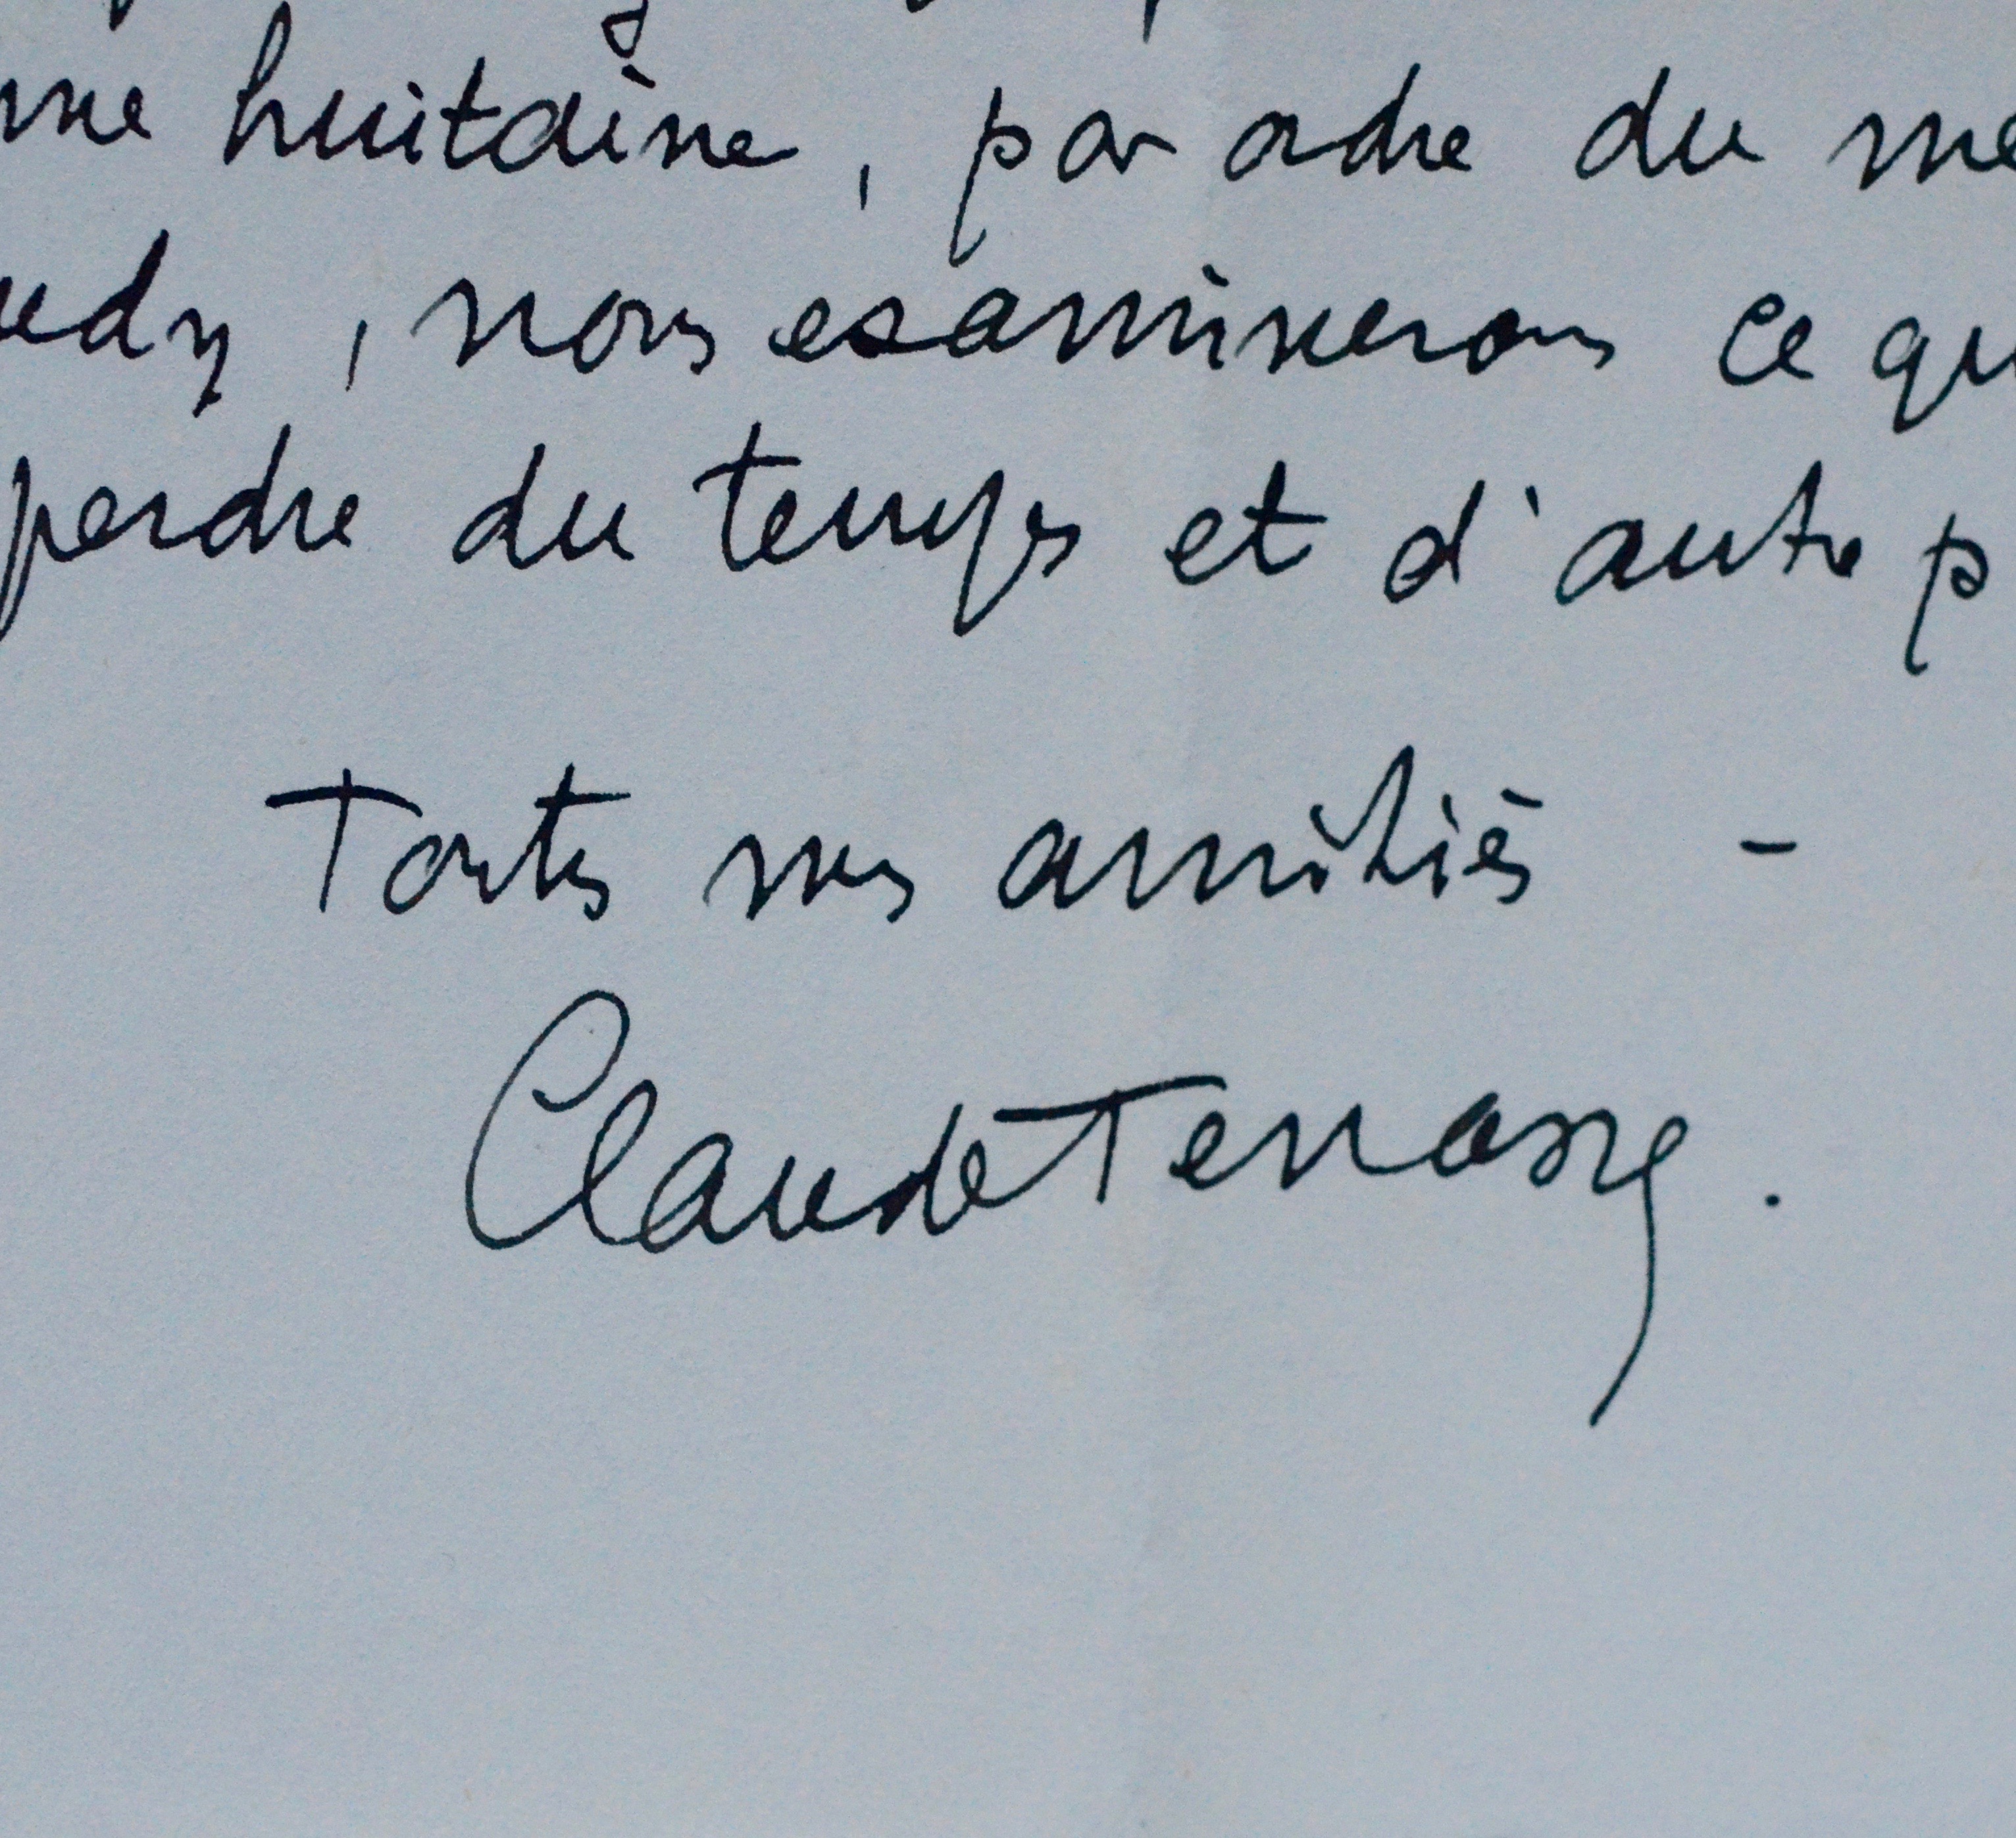 une huitaine, par ordre du mé
udy, nous examinerons ce qu
perdre du temps et d'autre p
Toutes mes amitiés -
Claude Terrasse.